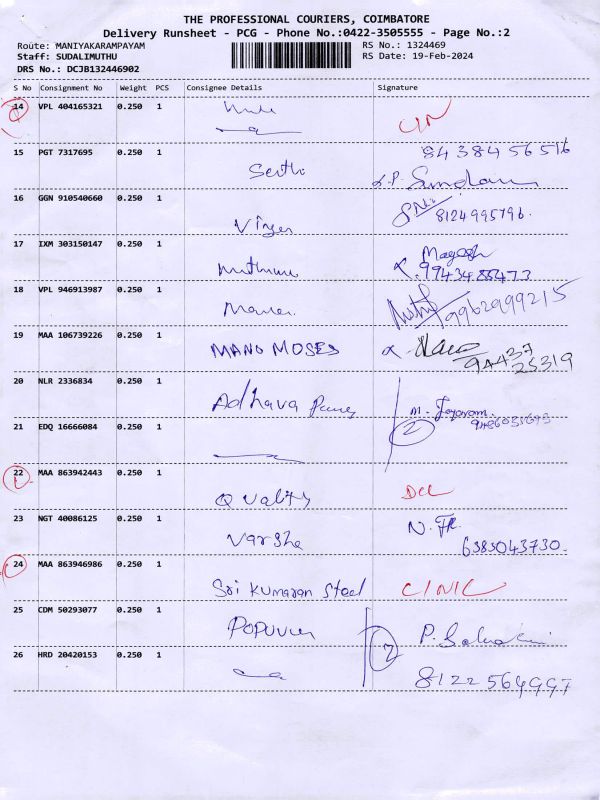 THE PROFESSIONAL COURIERS, COIMBATORE
Delivery Runsheet - PCG - Phone No.:0422-3505555 - Page No.:2
Route: MANIYAKARAMPAYAM RS No.: 1324469
Staff: SUDALIMUTHU RS Date: 19-Feb-2024
DRS No.: DCJB132446902
S No Consignment No Weight PCS Consignee Details Signature
14 VPL 404165321 0.250 1
15 PGT 7317695 0.250 1 8438456516
16 GGN 910540660 0.250 1
8124995796.
17 IXM 303150147 0.250 1 Magesh
9943485473
18 VPL 946913987 0.250 1
9962999215
19 MAA 106739226 0.250 1 MANO MOSES
94437
25319
20 NLR 2336834 0.250 1 Adhava
M. Jayaram
21 EDQ 16666084 0.250 1 2
22 MAA 863942443 0.250 1
QUALITY DCL
23 NGT 40086125 0.250 1
Varsha 6383043730.
24 MAA 863946986 0.250 1
Sri Kumaran Steel C/NIC
25 CDM 50293077 0.250 1 POPUVLR
26 HRD 20420153 0.250 1 2
8122564997